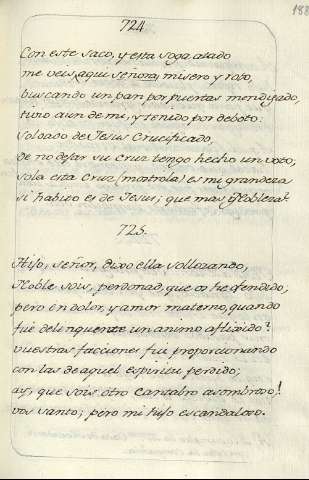 188
724
Con este saco, y esta soga atado
me veis, aqui señora, misero y roto,
buscando un pan por puertas mendigado,
tivio aun de mi, y tenido por deboto:
Soldado de Jesus Crucificado,
de no dejar su Cruz tengo hecho un voto;
sola esta Cruz (matrola) es mi grandeza
si habito es de Jesus; que mas Nobleza?
725.
Hijo, señor, dixo ella sollozando,
Noble sois, perdonad, que os he ofendido;
pero en dolor, y amor materno, quando
fue delinquente un animo aflixido?
vuestras facciones fui proporcionando
con las de aquel espiritu perdido;
ay, que sois otro Cantabro asombroso!
vos santo; pero mi hijo escandaloso.